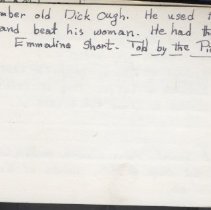 mber old Dick Ough. He used
and beat his woman. He had
Emmaline Short. Told by the